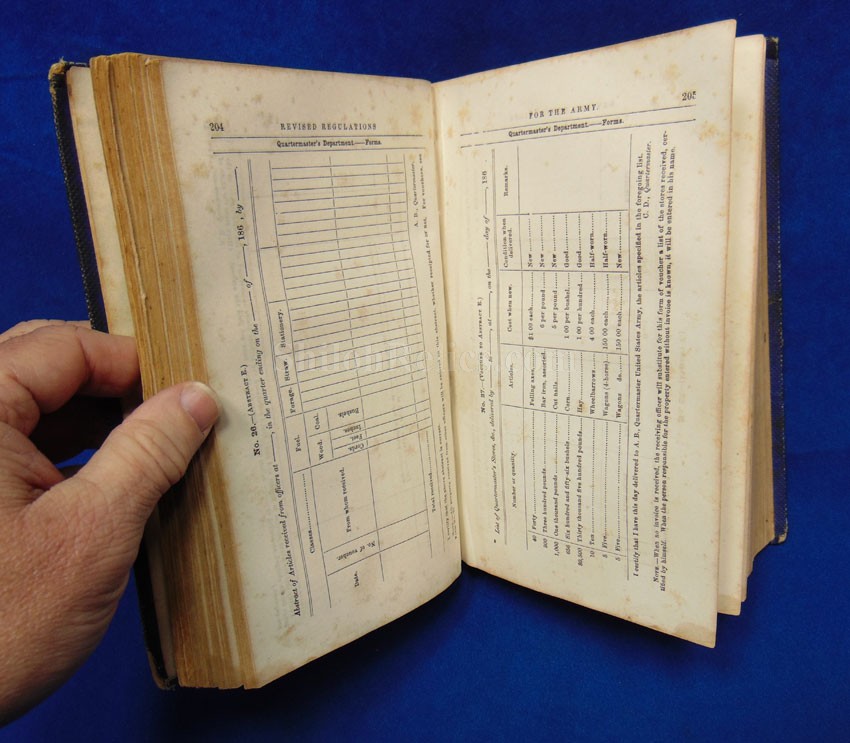 204
REVISED REGULATIONS
Quartermaster's Department—Forms.
No. 26.—(ABSTRACT E.)
Abstract of Articles received from officers at ——, in the quarter ending on the —— of ——, 186 , by ——.
Classes.
Fuel.
Forage.
Straw.
Stationery.
Date.
No. of voucher.
From whom received.
Wood.
Coal.
Cords.
Feet.
Inches.
Bushels.
Total received
A. B., Quartermaster.
FOR THE ARMY.
205
Quartermaster's Department—Forms.
No. 27.—(VOUCHER TO ABSTRACT E.)
List of Quartermaster's Stores, &c., delivered by —— to ——, at ——, on the —— day of ——, 186
Number or quantity.
Articles.
Cost when new.
Condition when delivered.
Remarks.
40 Forty Felling axes $1 00 each New
300 Three hundred pounds Bar iron, assorted 6 per pound New
1,000 One thousand pounds Cut nails 5 per pound New
650 Six hundred and fifty-six bushels Corn 1 00 per bushel Good
Thirty thousand five hundred pounds Hay 1 00 per hundred Good
10 Ten Wheelbarrows 4 00 each Half-worn
5 Five Wagons (4-horse) 150 00 each Half-worn
5 Five Wagons do. 150 00 each New
I certify that I have this day delivered to A. B., Quartermaster United States Army, the articles specified in the foregoing list.
C. D., Quartermaster.
NOTE.—When no invoice is received, the receiving officer will substitute for this form of voucher a list of the stores received, certified by himself. When the person responsible for the property entered without invoice is known, it will be entered in his name.